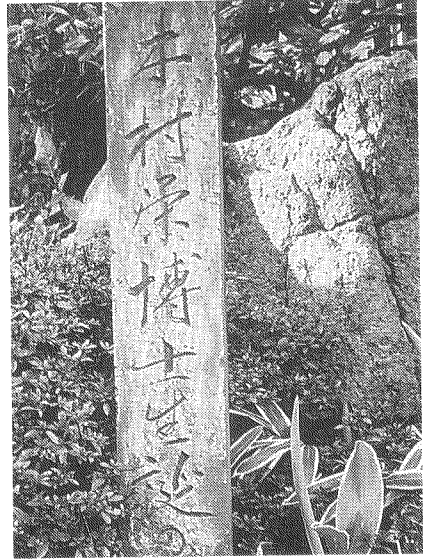 木村栄博士生誕の